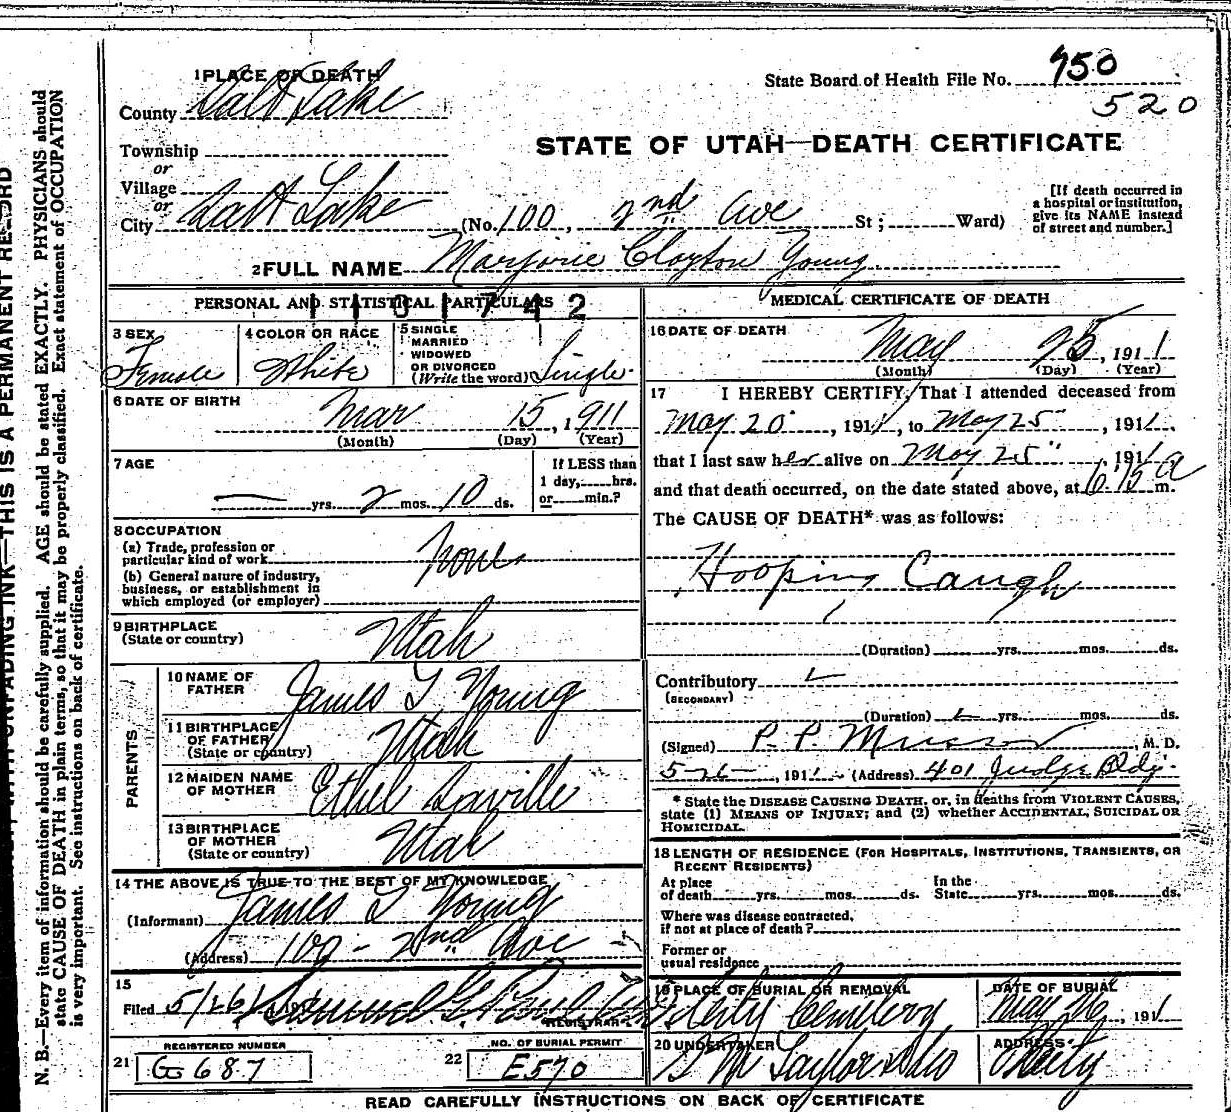 1 PLACE OF DEATH
State Board of Health File No. 450
520
County Salt Lake
STATE OF UTAH—DEATH CERTIFICATE
Township
or
Village
or
City Salt Lake (No. 100, 2nd Ave St; Ward)
[If death occurred in
a hospital or institution,
give its NAME instead
of street and number.]
2 FULL NAME Marjorie Clayton Young
PERSONAL AND STATISTICAL PARTICULARS
1101742
3 SEX
Female
4 COLOR OR RACE
White
5 SINGLE
MARRIED
WIDOWED
OR DIVORCED
(Write the word) Single
6 DATE OF BIRTH
Mar 15, 1911
(Month) (Day) (Year)
7 AGE
— yrs. 2 mos. 10 ds.
If LESS than
1 day, hrs.
or min.?
8 OCCUPATION
(a) Trade, profession or
particular kind of work None
(b) General nature of industry,
business, or establishment in
which employed (or employer)
9 BIRTHPLACE
(State or country) Utah
PARENTS
10 NAME OF
FATHER James Young
11 BIRTHPLACE
OF FATHER
(State or country) Utah
12 MAIDEN NAME
OF MOTHER Ethel Saville
13 BIRTHPLACE
OF MOTHER
(State or country) Utah
14 THE ABOVE IS TRUE TO THE BEST OF MY KNOWLEDGE
(Informant) James Young
(Address) 109 - 2nd Ave
15
Filed 5/26/ 191 Samuel G. Paul
REGISTRAR
REGISTERED NUMBER
21 G 687
NO. OF BURIAL PERMIT
22 E570
MEDICAL CERTIFICATE OF DEATH
16 DATE OF DEATH
May 25, 1911
(Month) (Day) (Year)
17 I HEREBY CERTIFY, That I attended deceased from
May 20, 1911, to May 25, 1911.
that I last saw her alive on May 25, 1911
and that death occurred, on the date stated above, at 615 a m.
The CAUSE OF DEATH* was as follows:
Hooping Caugh
(Duration) yrs. mos. ds.
Contributory
(SECONDARY)
(Duration) yrs. mos. ds.
(Signed) P. P. Musser, M. D.
5-26-, 1911 (Address) 401 Judge Bldg.
* State the DISEASE CAUSING DEATH, or, in deaths from VIOLENT CAUSES,
state (1) MEANS OF INJURY; and (2) whether ACCIDENTAL, SUICIDAL OR
HOMICIDAL.
18 LENGTH OF RESIDENCE (FOR HOSPITALS, INSTITUTIONS, TRANSIENTS, OR
RECENT RESIDENTS)
At place
of death yrs. mos. ds.
In the
State yrs. mos. ds.
Where was disease contracted,
if not at place of death?
Former or
usual residence
19 PLACE OF BURIAL OR REMOVAL
City Cemetery
DATE OF BURIAL
May 26, 1911
20 UNDERTAKER
S M Taylor & Co
ADDRESS
City
READ CAREFULLY INSTRUCTIONS ON BACK OF CERTIFICATE
UNFADING INK—THIS IS A PERMANENT RECORD
N. B.—Every item of information should be carefully supplied. AGE should be stated EXACTLY. PHYSICIANS should
state CAUSE OF DEATH in plain terms, so that it may be properly classified. Exact statement of OCCUPATION
is very important. See instructions on back of certificate.